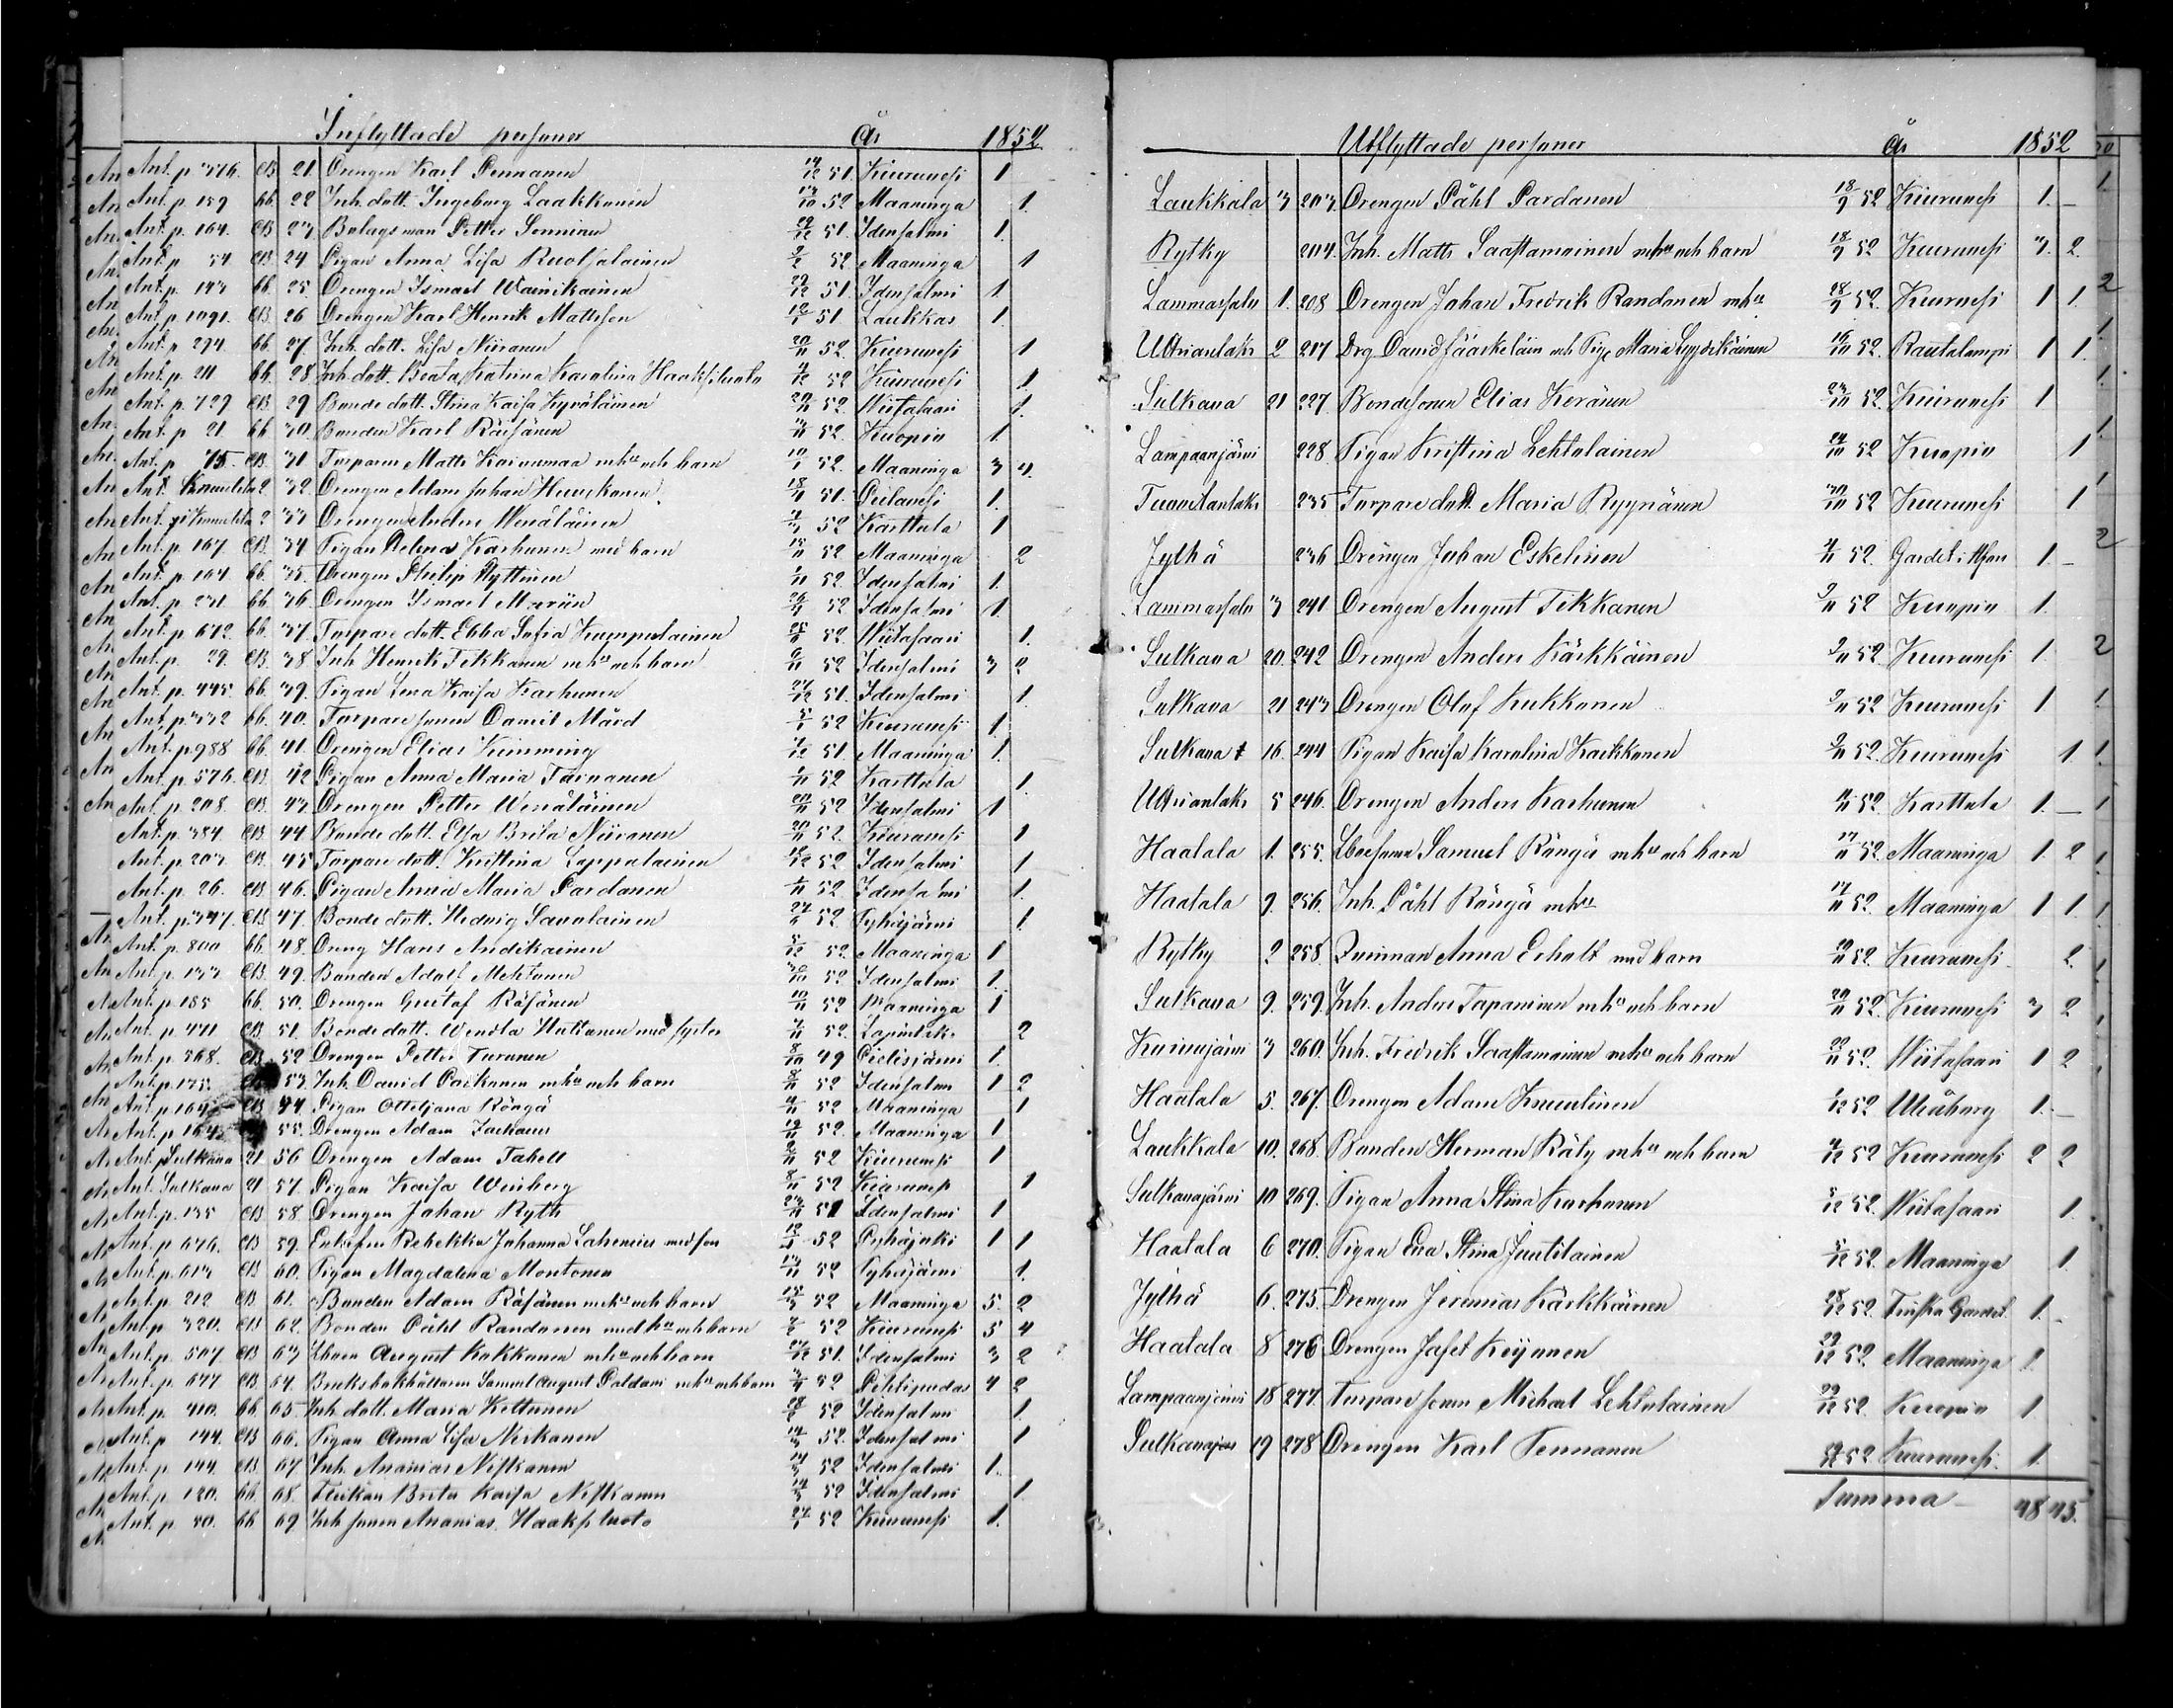 Inflyttade personer År 1852
Ant. p. 376. CB 21. Drengen Karl Pennanen 14/12 51. Kiuruvesi 1
Ant. p. 159 bb. 22 Inh. dott. Ingeborg Laakkonen 13/10 52 Maaninga 1.
Ant. p. 164. CB 23. Bolagsman Petter Sonninen 29/12 51. Idensalmi 1.
Ant. p 54. CB 24 Pigan Anna Lisa Ruotsalainen 2/2 52 Maaninga 1
Ant. p. 143 bb. 25. Drengen Ismael Wainikainen 29/12 51. Idensalmi 1.
Ant. p. 1091. CB. 26 Drengen Karl Henrik Mattsson 51. Laukkas 1.
Ant. p. 294. bb. 27. Inh. dott. Lisa Niiranen 20/11 52. Kiuruvesi 1
Ant. p. 211 bb. 28 Inh. dott. Beata Katrina Karolina Haaksiluoto 52 Kiuruvesi 1.
Ant. p. 729 CB 29 Bonde dott. Stina Kaisa Hyväläinen 29/11 52. Wiitasaari 1.
Ant. p 21. bb 30. Bonden Karl Räisänen 52. Kuopio 1.
Ant. p 75. CB. 31 Torparen Matts Kainumaa mhu och barn 52. Maaninga 3
Ant. 2 32. Drengen Adam Johan Huuskonen 51. Pielavesi 1.
Ant. 2 33 Drengen Anders Wenäläinen 52 Karttula 1
Ant. p. 167. CB. 34 Pigan Helena Karhunen med barn 52 Maaninga 2
Ant. p. 164 bb. 35. Drengen Philip Hyttinen 52. Idensalmi 1.
Ant. p. 231. bb 36. Drengen Ismael Mariin 52 Idensalmi 1.
Ant. p. 672. bb. 37. Torpare dott. Ebba Sofia Kumpulainen 25/11 52. Wiitasaari 1.
Ant. p. 29. CB. 38. Inh Henrik Tikkanen mhu och barn 52 Idensalmi 3 2
Ant. p. 445. bb. 39. Pigan Lena Kaisa Karhunen 27/12 51. Idensalmi 1
Ant. p. 332 bb. 40. Torpare sonen Daniel Mård 52 Kiuruvesi 1.
Ant. p. 988 bb. 41. Drengen Elias Kimming 51. Maaninga 1.
Ant. p. 576. CB. 42 Pigan Anna Maria Tarnanen 52 Karttula 1.
Ant. p. 208. CB. 43. Drengen Petter Wenäläinen 20/11 52 Idensalmi 1
Ant. p. 384. CB 44 Bonde dott. Elsa Brita Niiranen 20/11 52. Kiuruvesi 1
Ant. p. 203. CB. 45 Torpare dott. Kristina Lappalainen 52 Idensalmi 1
Ant. p. 26. CB 46. Pigan Anna Maria Pardanen 52 Idensalmi 1.
Ant. p. 347. CB 47. Bonde dott. Hedvig Savolainen 52 Pyhäjärvi 1.
Ant. p. 800 bb 48. Dreng Hans Andikainen 5/12 52. Maaninga 1
Ant. p. 133 CB 49. Bonden Adolf Mehtonen 52 Idensalmi 1.
Ant. p. 185 bb. 50. Drengen Gustaf Räsänen 10/11 52 Maaninga 1
Ant. p. 471 CB 51. Bonde dott. Wendla Huttunen med syster 52. Lapinlak. 2
Ant. p. 568. CB. 52 Drengen Petter Turunen 8/10 49 Pielisjärvi 1.
Ant. p. 175. CB 53. Inh. David Paikanen mhu och barn 8/11 52 Idensalmi 1 2
Ant. p. 164 CB 54. Pigan Otteljana Röngä 52 Maaninga 1
Ant. p. 164. 55. Drengen Adam 19/11 52. Maaninga 1
Ant. p. Sulkava 21 56 Drengen Adam Tabell 52 Kiuruvesi 1
Ant. Sulkava 21 57. Pigan Kaisa Winberg 8/11 52 Kiuruvesi 1
Ant. p. 135 CB 58 Drengen Johan Ryth 51 Idensalmi 1
Ant. p. 676. CB 59. Enkefru Rebekka Johanna Lahenius med son 52 Pyhäjoki 1 1
Ant. p. 613 CB 60. Pigan Magdalena Montonen 13/11 52 Pyhäjärvi 1.
Ant. p. 212 CB 61. Bonden Adam Räsänen mhu och barn 52 Maaninga 5. 2
Ant. p. 320. CB 62. Bonden Påhl Randanen med hu och barn 52 Kiuruvesi 5 4
Ant. p. 507. CB 63 August Kokkonen mhu och barn 51. Idensalmi 3 2
Ant. p. 677 CB 64. Bruksbokhållaren Samuel August Paldani mhu och barn 52 Pihtipudas 4 2
Ant. p. 410. bb. 65 Inh. dott. Maria Kettunen 52 Idensalmi 1.
Ant. p. 144. CB 66. Pigan Anna Lisa Niskanen 52. Idensalmi 1
Ant. p. 144. CB. 67 Inh. Ananias Niskanen 52 Idensalmi 1.
Ant. p. 120. bb. 68. Flickan Brita Kaisa Niskanen 52 Idensalmi 1.
Ant. p. 80. bb 69 Inh sonen Ananias Haaksiluoto 52 Kiuruvesi 1.
Utflyttade personer År 1852
Laukkala 3 203 Drengen Påhl Pardanen 18/9 52 Kiuruvesi 1. –
Rytky 204. Inh. Matts Saastamoinen mhu och barn 18/9 52 Kiuruvesi 3. 2.
Lammassalo 1. 208 Drengen Johan Fredrik Randanen mhu 28/9 52. Kiuruvesi 1 1.
Utrianlaks 2 217 Drg David Jääskeläin och Piga Maria Lyydikäinen 16/10 52. Rautalampi 1 1.
Sulkava 21 227. Bondesonen Elias Keränen 23/10 52. Kiuruvesi 1
Lampaanjärvi 228. Pigan Kristina Lehtolainen 24/10 52 Kuopio 1
Tuovilanlaks 235 Torpare dott. Maria Ryynänen 30/10 52 Kiuruvesi 1
Jylhä 236 Drengen Johan Eskelinen 52. Gardet i Hfors 1. –
Lammassalo 3 241 Drengen August Tikkanen 52 Kuopio 1.
Sulkava 20. 242 Drengen Anders Kärkkäinen 52. Kiuruvesi 1.
Sulkava 21 243 Drengen Olof Kukkonen 52 Kiuruvesi 1
Sulkava 16. 244 Pigan Kaisa Karolina Kaikkonen 52. Kiuruvesi 1
Utrianlaks 5 246. Drengen Anders Karhunen 52. Karttula 1. –
Haatala 1. 255. Samuel Röngä mhu och barn 17/11 52. Maaninga 1. 2
Haatala 9. 256. Inh. Påhl Röngä mhu 17/11 52. Maaninga 1 1.
Rytky 2 258. Anna Erholt med barn 52. Kiuruvesi 2.
Sulkava 9. 259. Inh. Anders Tapaninen mhu och barn 20/11 52. Kiuruvesi 3 2
3 260. Inh. Fredrik Saastamoinen mhu och barn 22/11 52. Wiitasaari 1 2
Haatala 5. 267. Drengen Adam Knuutinen 52 Uleåborg 1. –
Laukkala 10. 268. Bonden Herman Räty mhu och barn 4/12 52 Kiuruvesi 2 2
Sulkavajärvi 10 269. Pigan Anna Stina Karhunen 52. Wiitasaari 1.
Haatala 6 270. Pigan Eva Stina Juutilainen 5/12 52 Maaninga 1.
Jylhä 6. 275. Drengen Jeremias Kärkkäinen 28/12 52. Finska Gardet 1. –
Haatala 8 276 Drengen Jafet Keijonen 29/12 52. Maaninga 1
Lampaanjärvi 18 277. Torpare sonen Michael Lehtolainen 29/12 52. Kuopio 1
Sulkavajärvi 19 278 Drengen Karl Pennanen 52 Kiuruvesi. 1.
Summa 48 45.